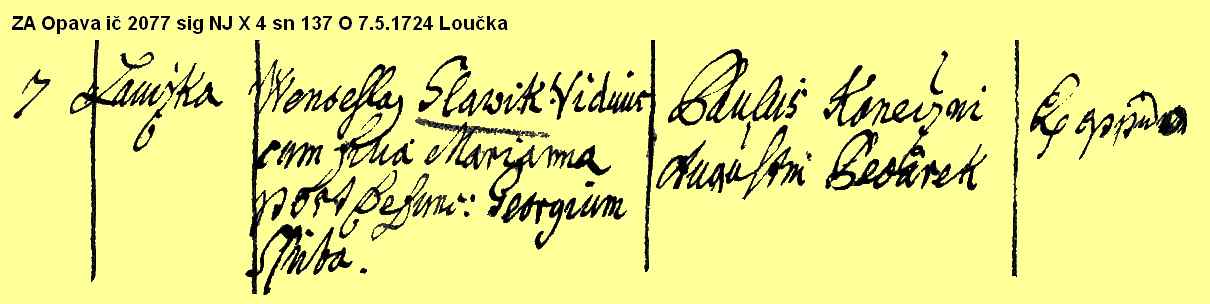 ZA Opava ič 2077 sig NJ X 4 sn 137 O 7.5.1724 Loučka
7 Lauczka
Wenceßlaus Slawik Viduus
cum filia Marianna
post Defunc: Georgium
Paulus Koneczni
Augustin